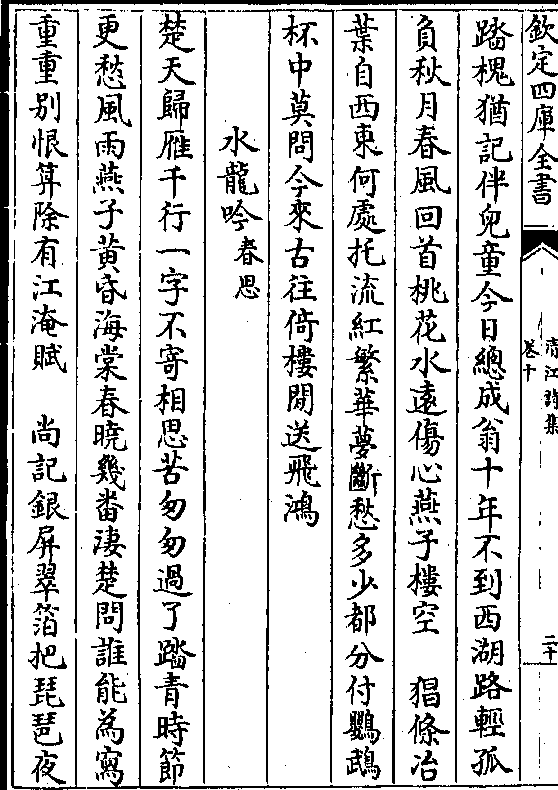 欽定四庫全書
清江詩集
卷十
二十
踏槐猶記伴兒童今日總成翁十年不到西湖路輕孤
負秋月春風回首桃花水遠傷心燕子樓空　猖條冶
葉自西東何處托流紅繁華夢斷愁多少都分付鸚鵡
杯中莫問今來古往倚樓閒送飛鴻
水龍吟春思
楚天歸雁千行一字不寄相思苦匆匆過了踏青時節
更愁風雨燕子黃昏海棠春曉幾畨淒楚問誰能為寫
重重別恨算除有江淹賦　尚記銀屏翠箔把琵琶夜